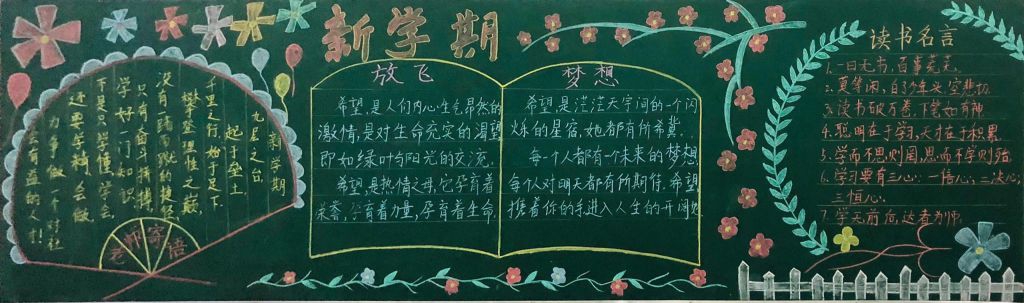 新学期
新学期
九层之台,
起于垒土
千里之行,始于足下
攀登理性之巅,
没有踏跳的捷径
只有奋斗拼搏
学好一门知识
不是只学懂,学会
还要学精,会做
为争做一个对社
会有益的人才!
老师寄语
放飞
希望,是人们内心生气昂然的
激情,是对生命充实的渴望
即如绿叶与阳光的交流.
希望是热情之母,它孕育着
荣誉,孕育着力量,孕育着生命.
梦想
希望,是茫茫天宇间的一个闪
烁的星宿,她都有所希冀.
每一个人都有一个未来的梦想,
每个人对明天都有所期待.希望
携着你的手,进入人生的开阔处
读书名言
1.一日无书,百事荒芜.
2.莫等闲,白了少年头,空悲切.
3.读书破万卷,下笔如有神.
4.聪明在于学习,天才在于积累.
5.学而不思则罔,思而不学则殆.
6.学习要有三心:一信心,二决心,
三恒心.
7.学无前后,达者为师.